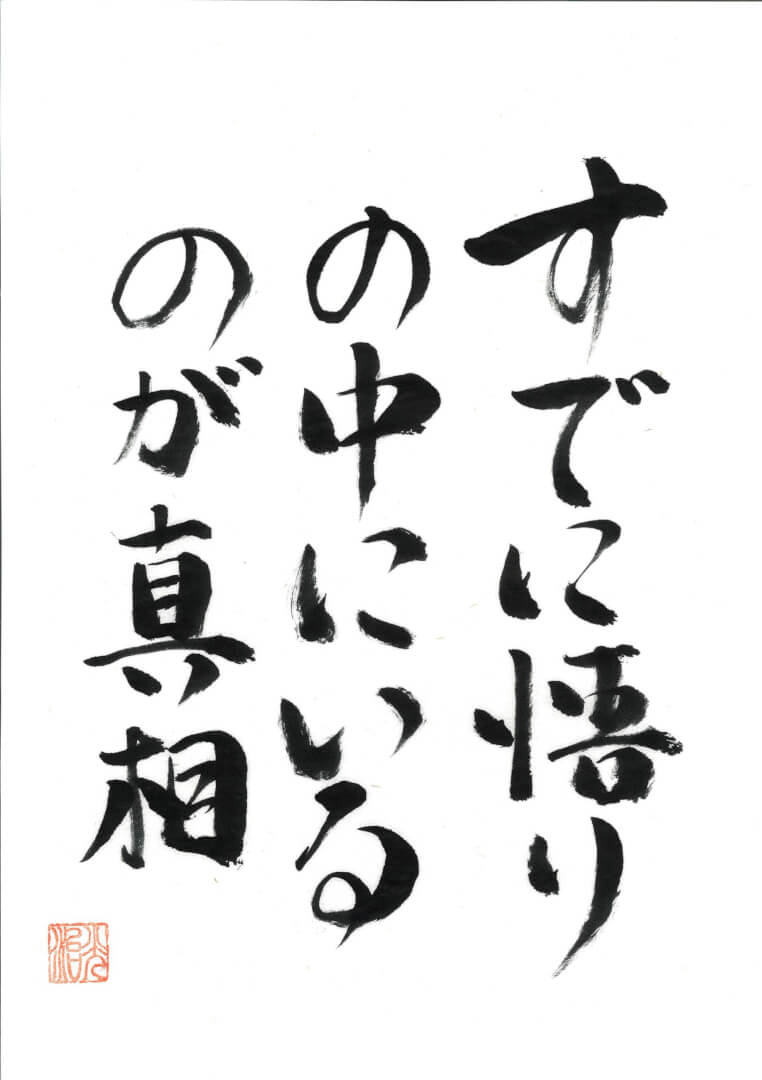 すでに悟り
の中にいる
のが真相